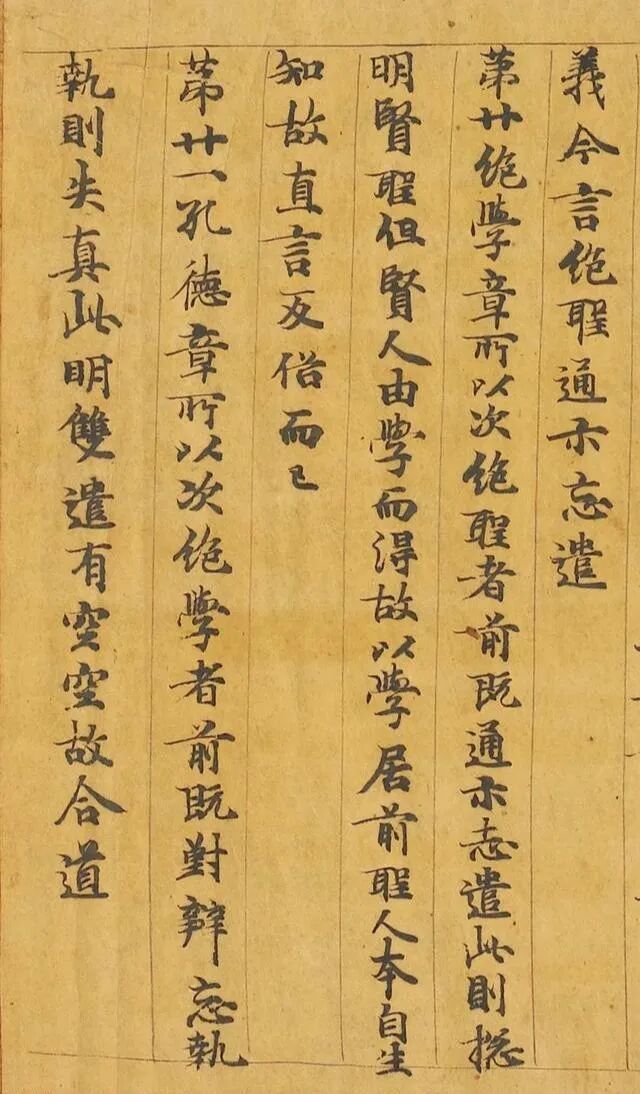 義今言绝聖通亦忘遣
第廿绝學章所以次绝聖者前既通亦忘遣此則揔
明賢聖但賢人由學而得故以學居前聖人本自生
知故直言反俗而已
第廿一孔德章所以次绝學者前既對辯忘執
執則失真此明雙遣有空空故合道